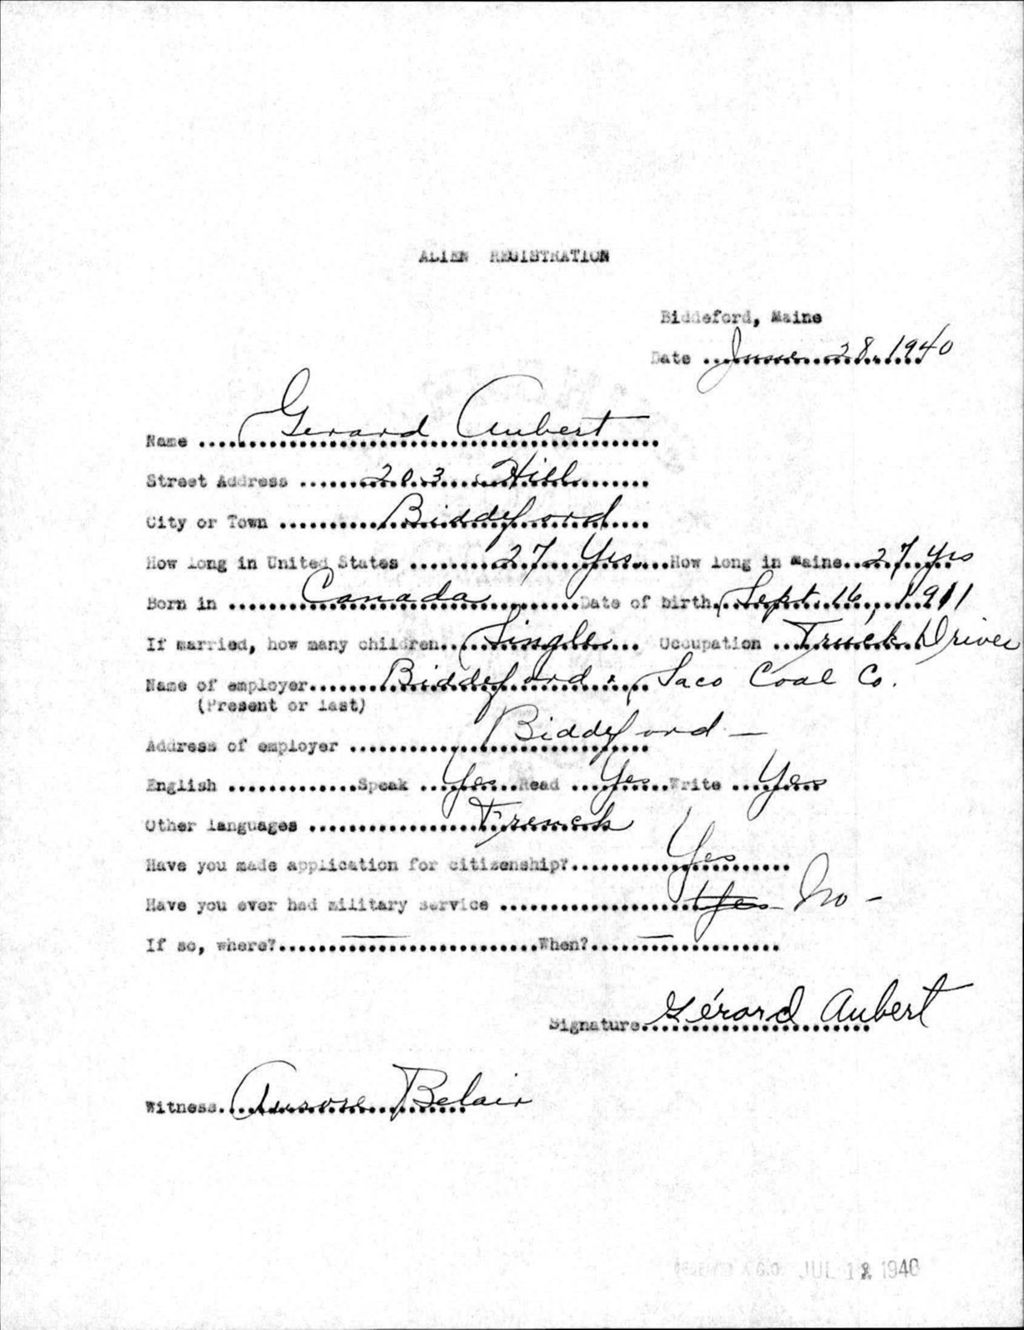 ALIEN REGISTRATION
Biddeford, Maine
Date ..June 28, 1940
Name ....Gerard Aubert
Street Address ......203 Hill
City or Town ........Biddeford
How long in United States ........27 Yrs...How long in Maine..27 Yrs
Born in ......Canada......Date of birth.Sept. 16, 1911
If married, how many children..Single... Occupation ..Truck Driver
Name of employer......Biddeford & Saco Coal Co.
(Present or last)
Address of employer ..........Biddeford –
English ............Speak ..Yes..Read ..Yes..Write ..Yes
Other languages ..........French
Have you made application for citizenship?........Yes
Have you ever had military service ..........Yes No –
If so, where?......—......When?...—......
Signature.Gérard Aubert
Witness.Aurore Belair
JUL 12 1940